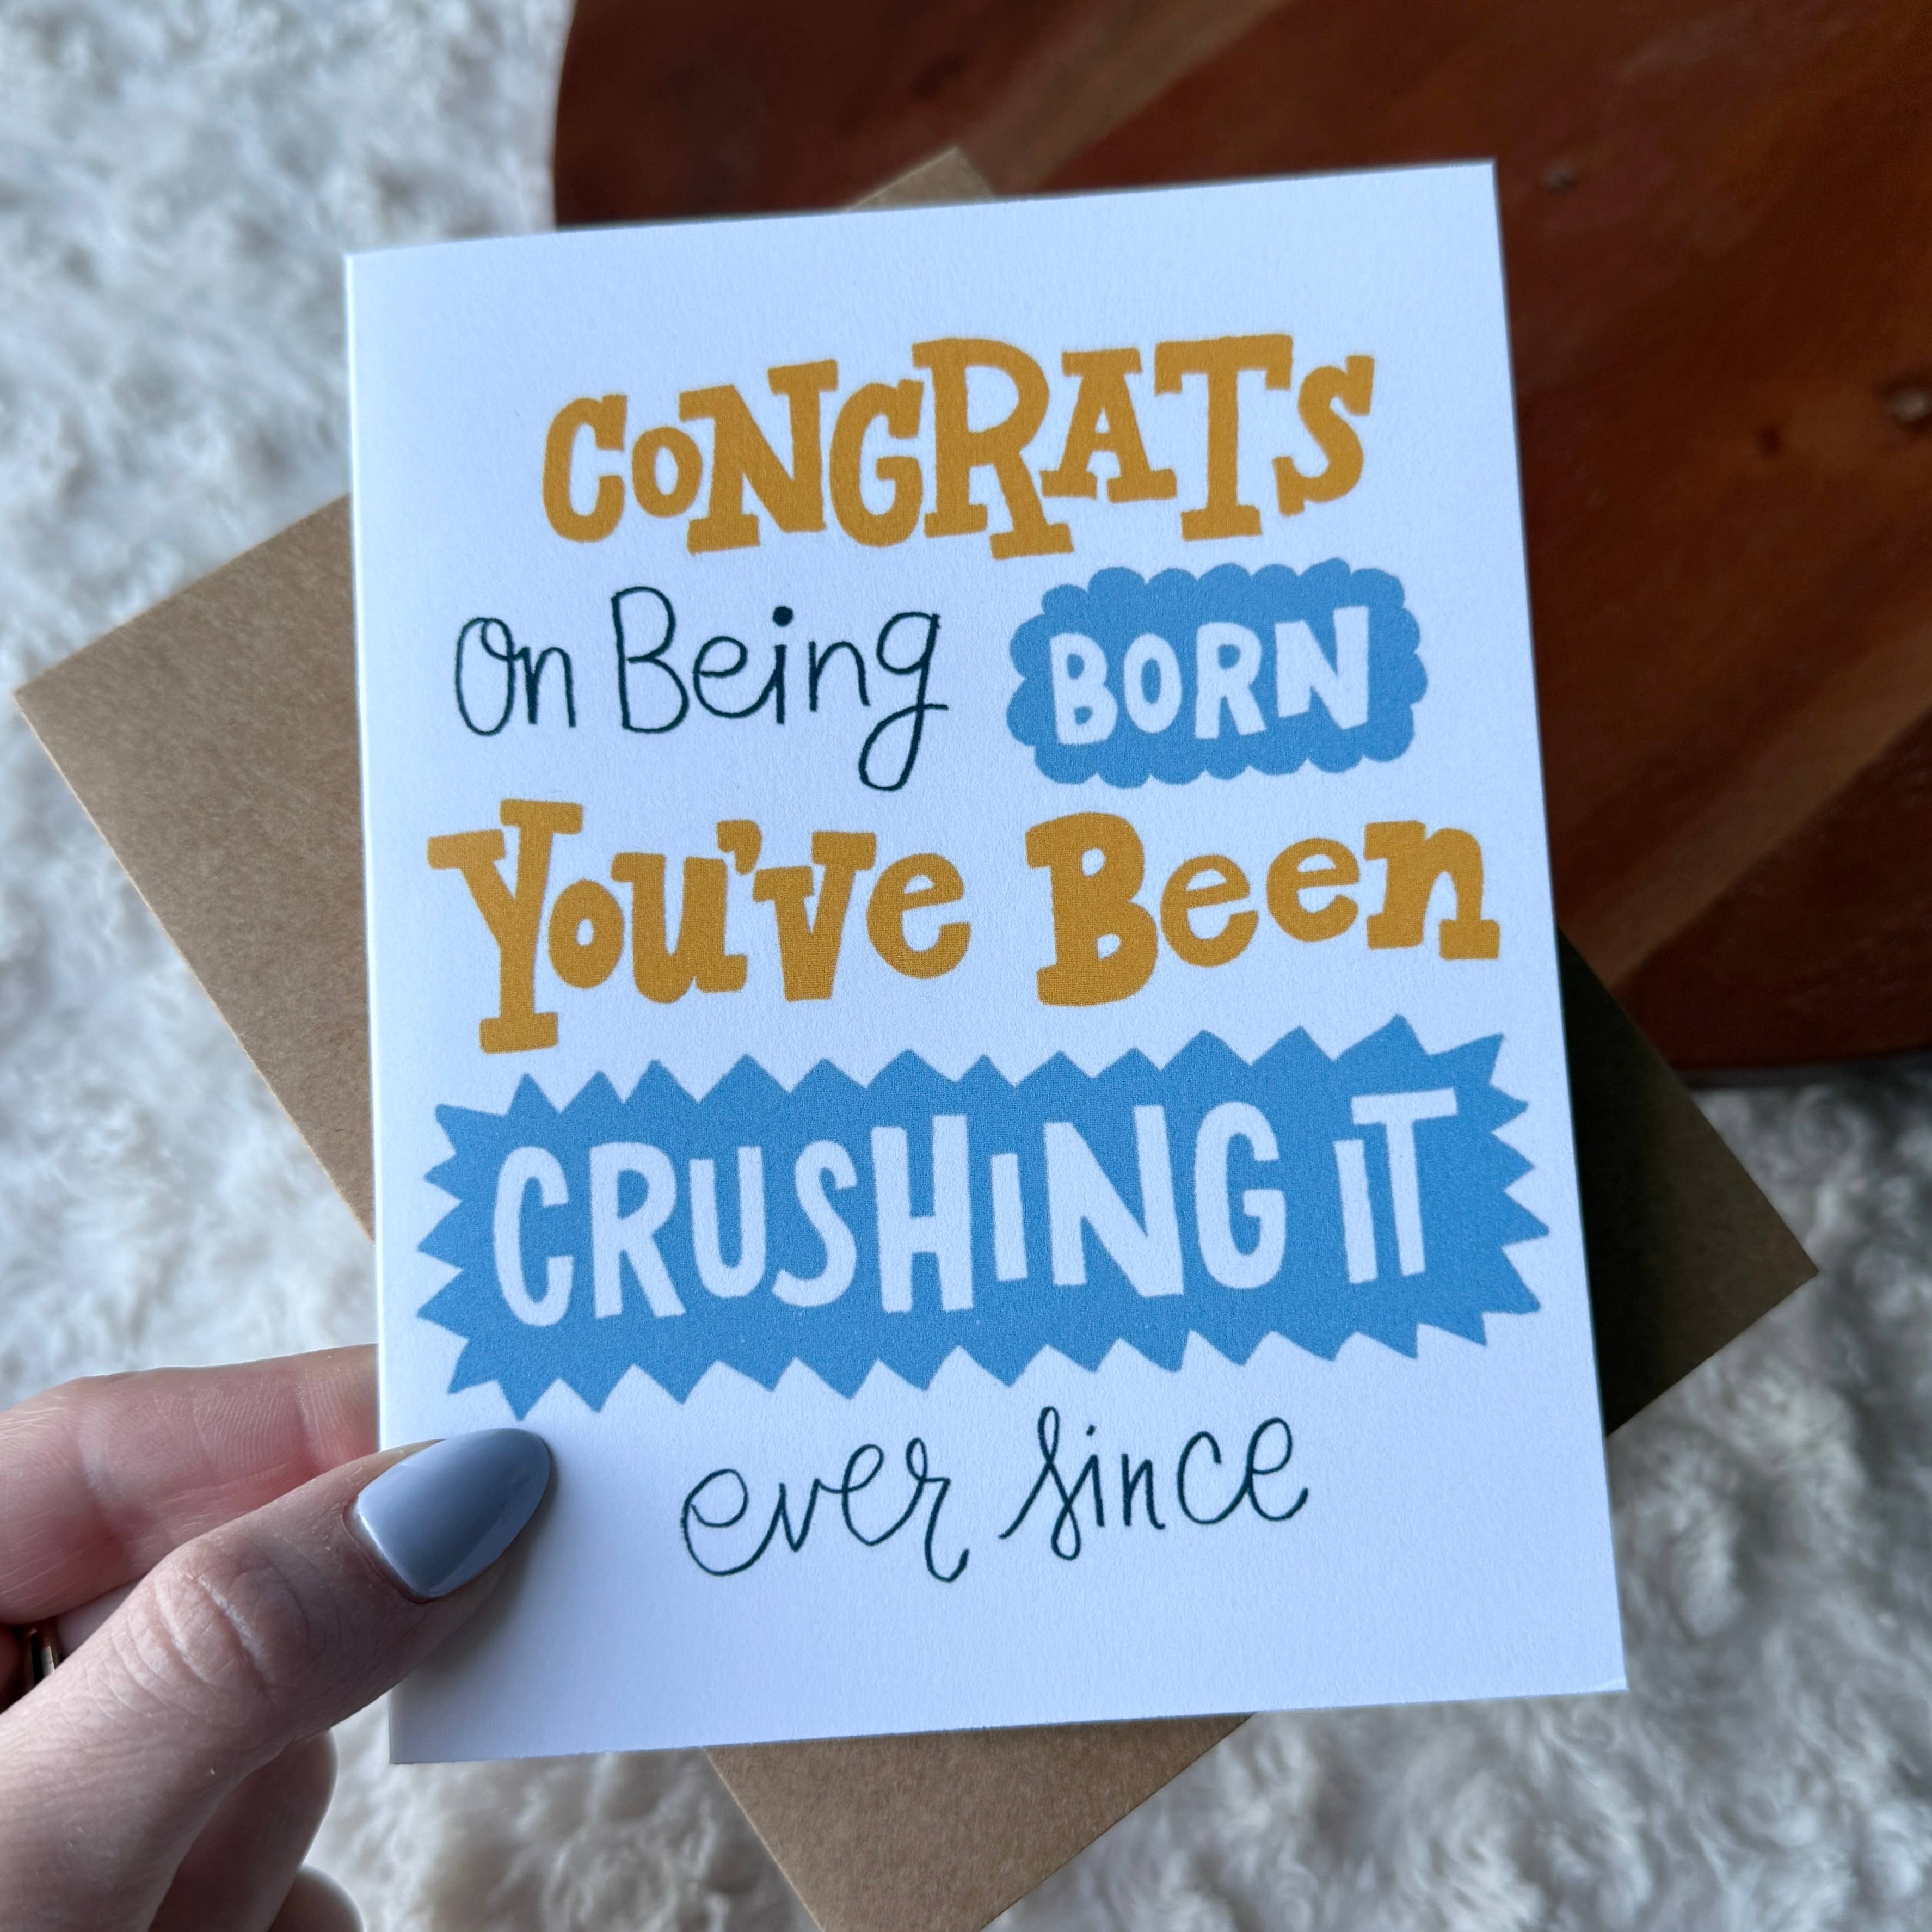 CONGRATS
On Being BORN
You've Been
CRUSHING IT
ever since